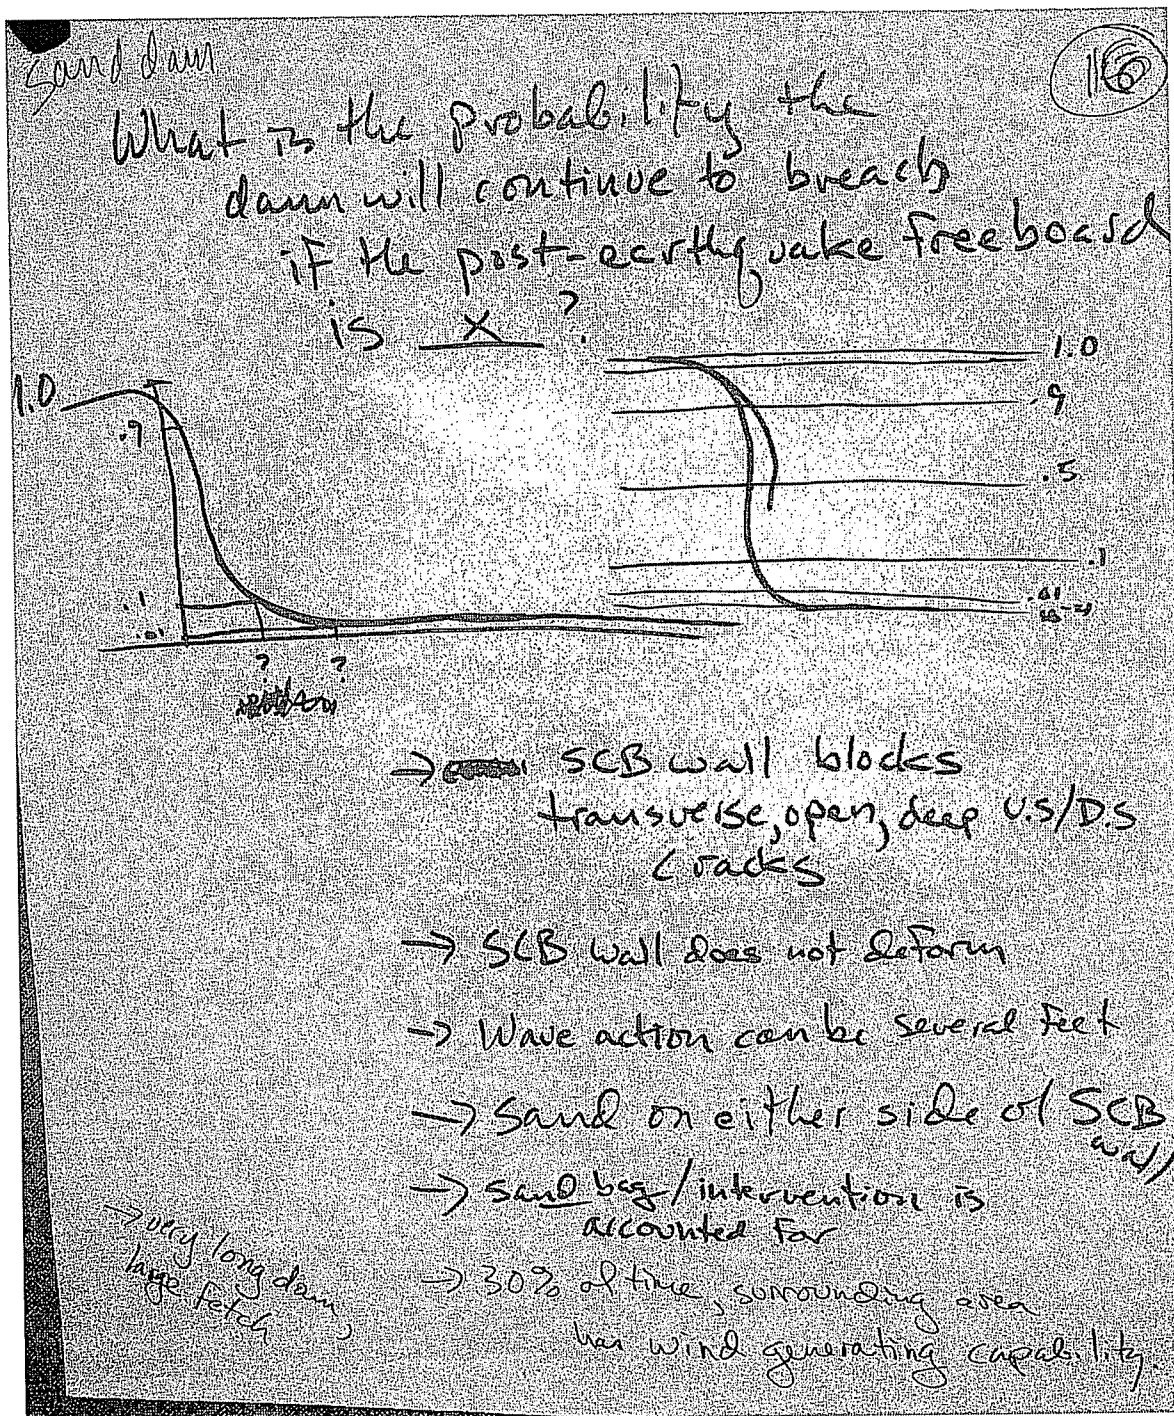 sand dam
What is the probability the
dam will continue to breach
if the post-earthquake freeboard
is X ?
1.0
.9
.1
.01
?
?
1.0
.9
.5
.1
.01
→ SCB wall blocks
transverse, open, deep U.S/D.S
cracks
→ SCB wall does not deform
→ Wave action can be several feet
→ Sand on either side of SCB
wall
→ sand bag/intervention is
accounted for
→ very long dam,
large fetch
→ 30% of time, surrounding area
has wind generating capability.